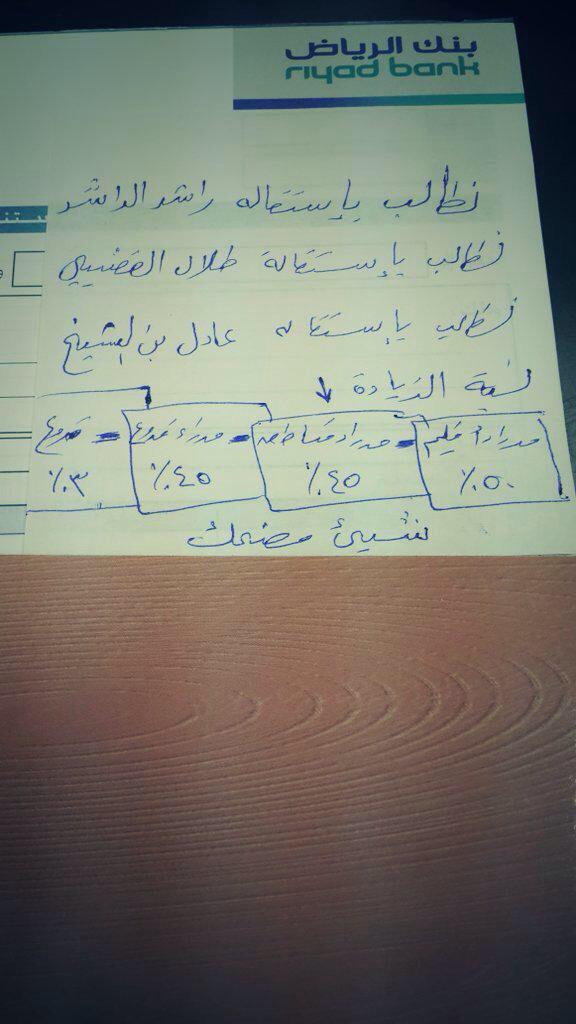 بنك الرياض
riyad bank
نطالب بإستقاله راشد الراشد
نطالب بإستقالة طلال القضيبي
نطالب بإستقاله عادل بن الشيخ
نسبة الزيادة
مدراء أقليم - مدراء مناطق - مدراء فروع - فروع
٥٠٪ ٤٥٪ ٤٥٪ ٣٪
شيئ مضحك